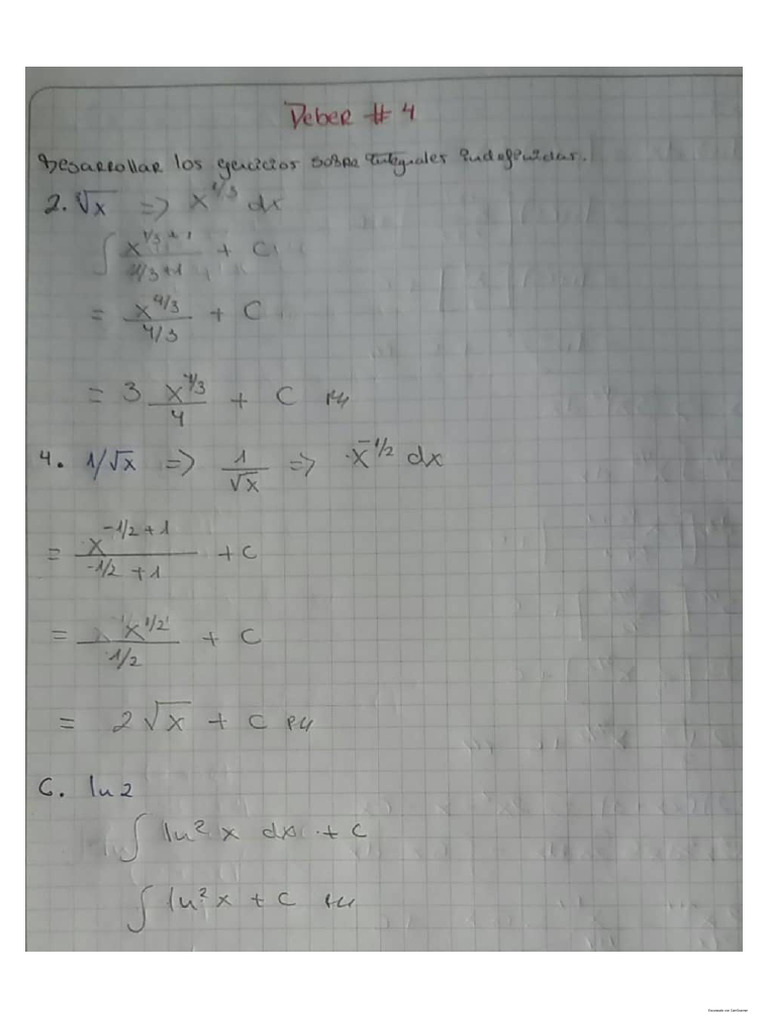 Deber # 4
Desarrollar los ejercicios sobre integrales indefinidas.
2. ∛x => x^1/3 dx
∫ x^1/3+1 / 1/3+1 + C
= x^4/3 / 4/3 + C
= 3 x^4/3 / 4 + C
4. 1/√x => 1/√x => x^-1/2 dx
= x^-1/2+1 / -1/2+1 + C
= x^1/2 / 1/2 + C
= 2√x + C
6. ln2
∫ ln² x dx + C
∫ ln² x + C